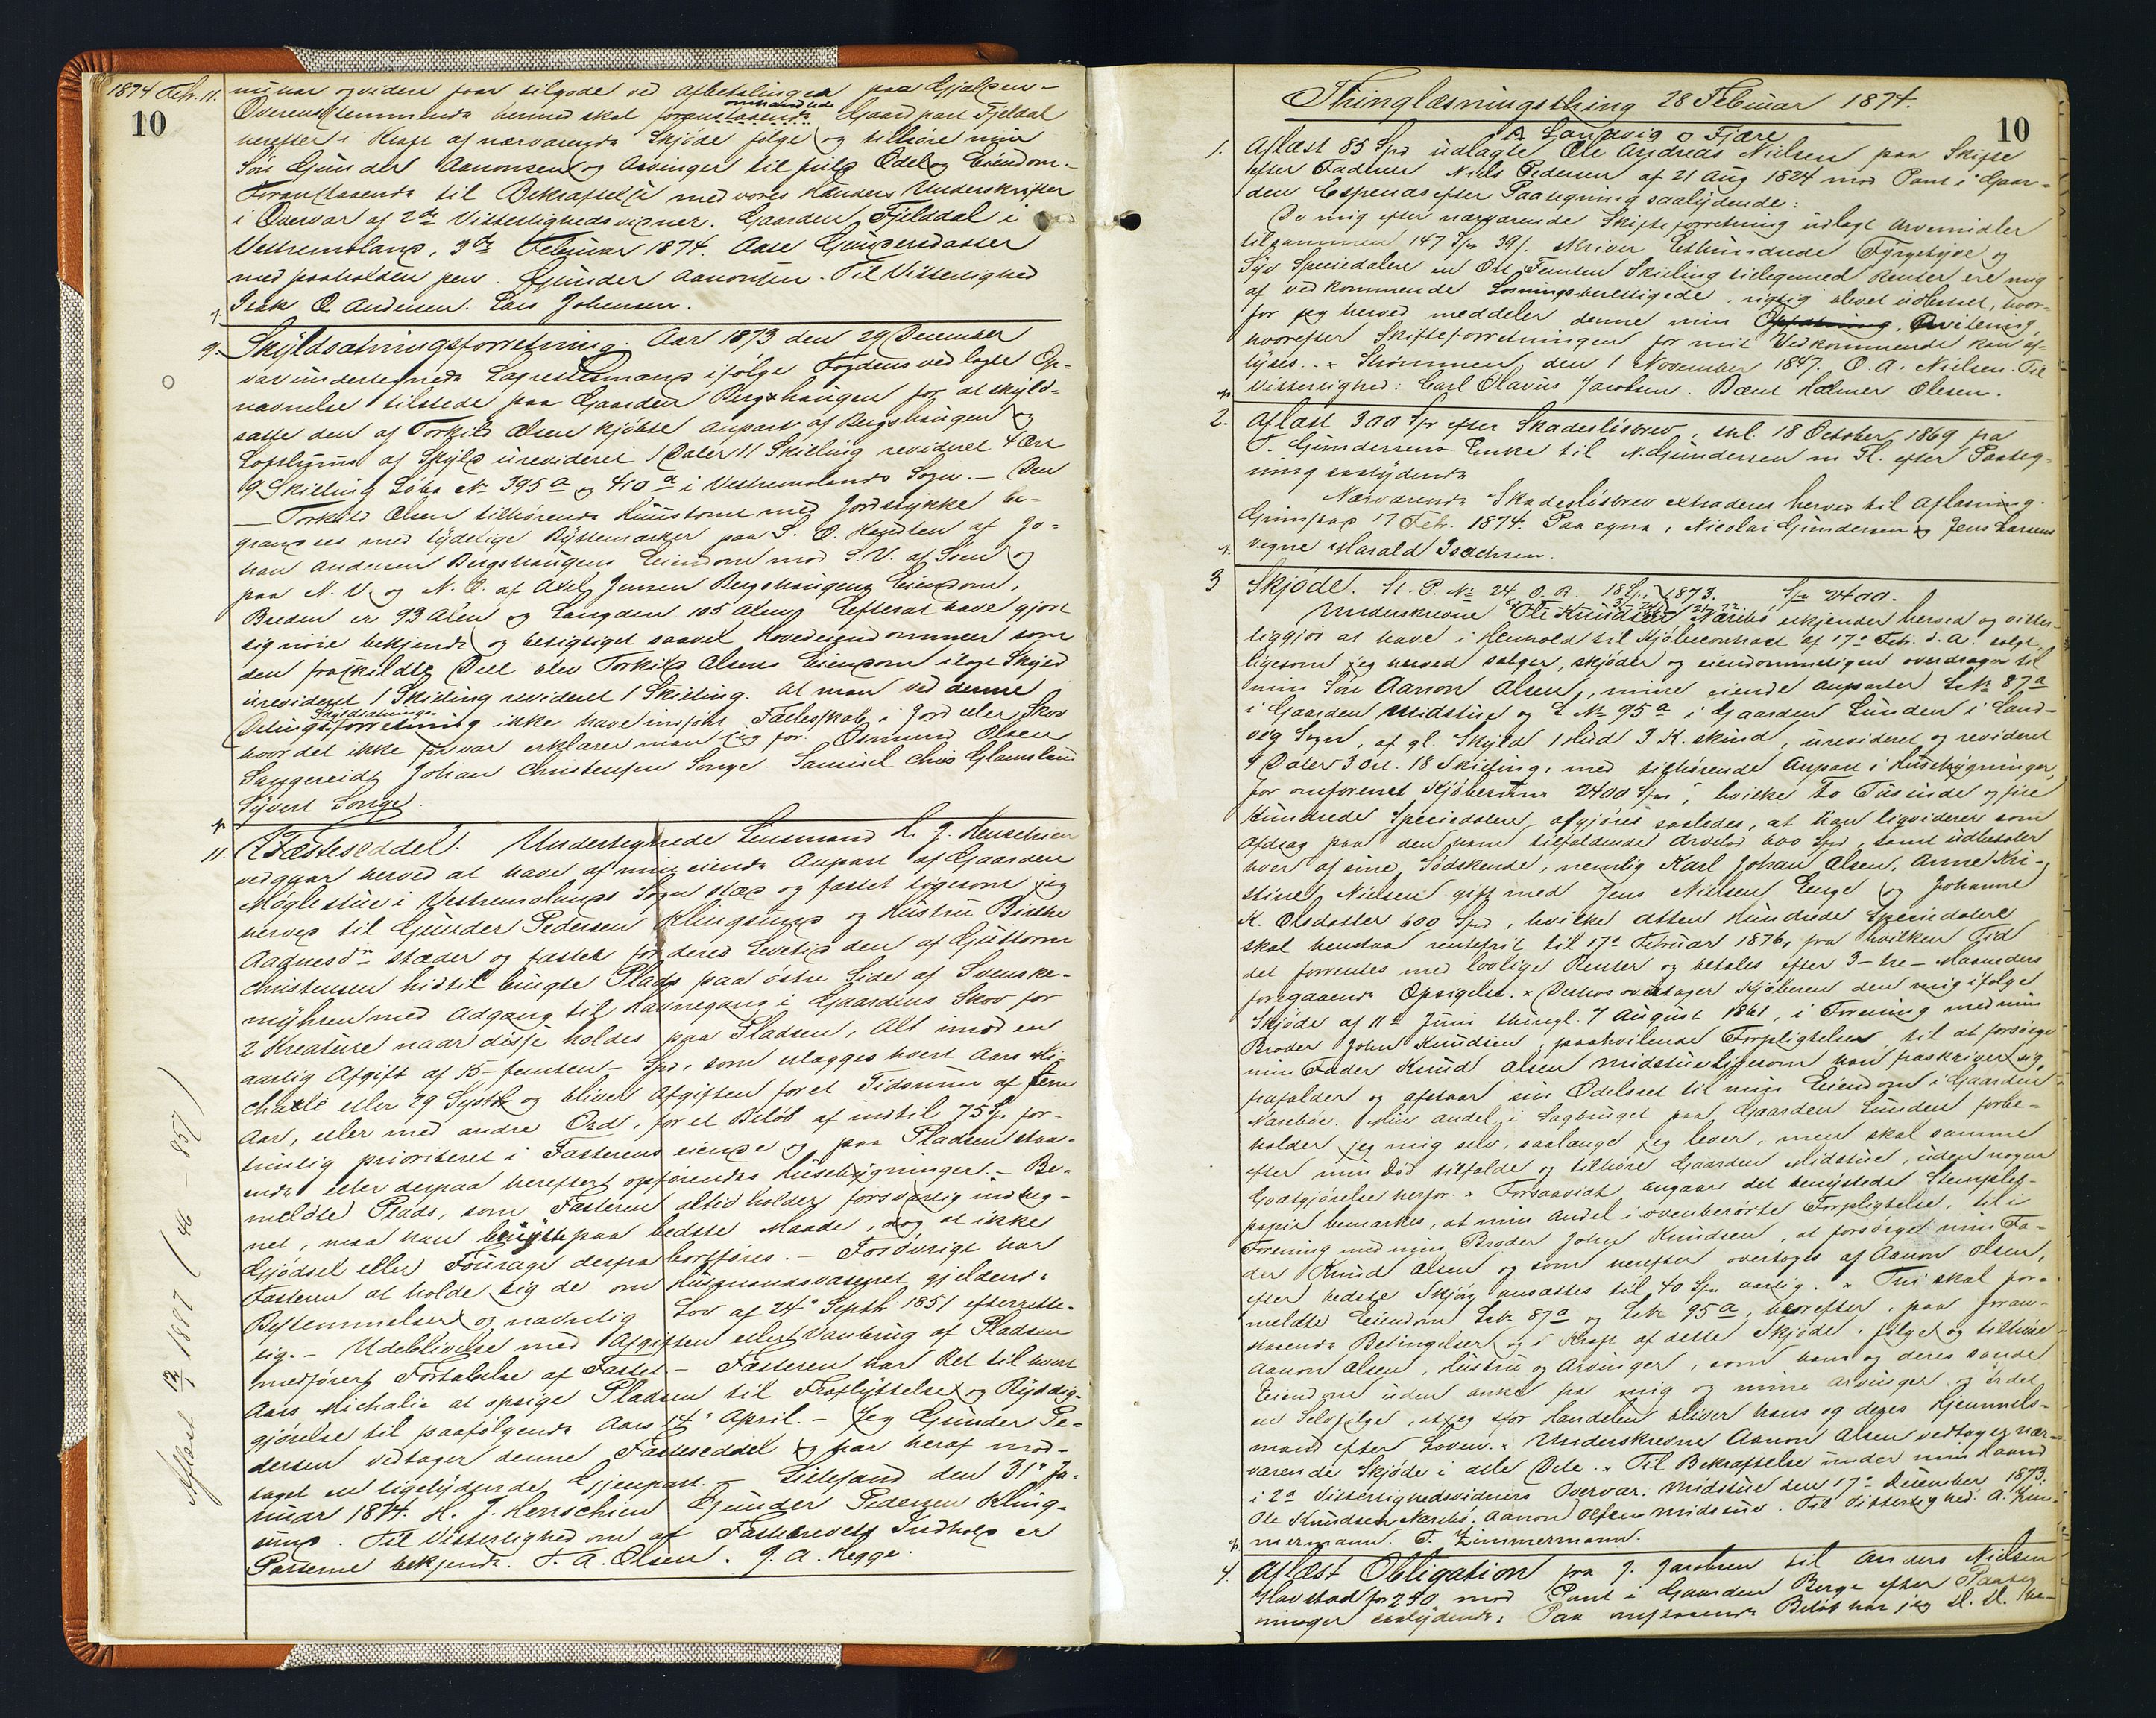 1874 Febr. 11.
10
minar og videre faar tilgode ved afbetalingen paa Gjælden –
Overensstemmende hermed skal foranstaaende omhandlede Gaardpart Fjeldal
herefter i Kraft af nærværende Skjøde følge og tilhøre min
Søn Gunder Aanonsen og Arvinger til fuld Odel og Eiendom. –
Foranstaaende til Bekræftelse med vores Hænders Underskrifter
i Overvær af 2de Vitterlighedsvidner. Gaarden Fjelddal i
Vestremoland, 3die Februar 1874. Aase Gundersdatter
med paaholden pen. Gunder Aanonsen. Til Vitterlighed
Isak O. Andersen. Lars Johensen.
9. Skyldsætningsforretning. Aar 1873 den 29 December
var undertegnede Lagrettesmænd ifølge Fogdens vedlagte Op-
nævnelse tilstede paa Gaarden Bergshaugen for at skyld-
sætte den af Torkild Olsen kjøbte anpart af Bergshaugen og
Loftsrum af Skyld urevideret 1 Daler 11 Skilling revideret 4 Ort
19 Skilling Løbe No 395 a og 410 a i Vestremolands Sogn. – Den
– Torkild Olsen tilhørende Huustomt med Jordstykke be-
grændses med tydelige Byttemærker paa S. O. Kanten af Jo-
han Andersen Bergshaugens Eiendom mod S. V. af Søen og
paa N. V. og N. O. af Axel Jensen Bergshaugens Eiendom.
Breden er 93 Alen og Længden 105 Alen. Efterat have gjort
sig nøie bekjendt og besigtiget saavel Hovedeiendommen som
den fraskildte Deel blev Torkild Olsens Eiendom ilagt Skyld
urevideret 1 Skilling revideret 1 Skilling. At man ved denne
Delings Skyldsætningsforretning ikke have indført Fælesskab i Jord eller Skov
hvor det ikke før var erklærer man sig for. Osmund Olsen
Langereid, Johan Christensen Songe. Samuel Chrs Glamsland
Syvert Songe.
11. Fæsteseddel. Undertegnede Lensmand H. J. Henschien
vedgaar herved at have af min eiende Anpart af Gaarden
Møglestue i Vestremolands Sogn stæd og fæstet ligesom jeg
herved til Gunder Pedersen Klingsund og Hustru Birthe
Aagnesdr stæder og fæster for deres Levetid den af Guttorm
Christensen hidtil brugte Plads paa østre Side af Svenske-
myhren med Adgang til Havnegang i Gaardens Skov for
2 Kreature naar disse holdes paa Pladsen, Alt imod en
aarlig Afgift af 15 – femten – Spd, som erlægges hvert Aars Mi-
chaeli eller 29 Septbr og bliver Afgiften for et Tidsrum af fem
Aar, eller med andre Ord, for et Beløb af indtil 75 Sp. for-
trinlig prioriteret i Fæsterens eiende og paa Pladsen staa-
ende eller derpaa herefter opførendes Husebygninger. – Be-
meldte Plads, som Fæsteren altid holder forsvarlig indheg-
net, maa han benytte paa bedste Maade, dog at ikke
Gjødsel eller Fourage derfra bortføres. – Forøvrigt har
Fæsteren at holde sig de om Husmandsvæsenet gjeldende
Bestemmelser og navnlig Lov af 24de Septbr 1851 efterrette-
lig. – Udeblivelse med Afgiften eller Vanbrug af Pladsen
medfører Fortabelse af Fæstet. – Fæsteren har Ret til hvert
Aars Michaeli at opsige Pladsen til Fraflyttelse og Ryddig-
gjørelse til paafølgende Aars 14de April. – Jeg Gunder Pe-
dersen vedtager denne Fæsteseddel og har heraf mod-
taget en ligelydende Gjenpart. – Lillesand den 31te Ja-
nuar 1874. H. J. Henschien Gunder Pedersen Kling-
sund. Til Vitterlighed om af Fæstebrevets Indhold er
Parterne bekjendt. T. A. Olsen. J. A. Hegge.
Aflæst 12/ 1887 (46 – 857)
Thinglæsningsthing 28 Februar 1874.
10
A. Landvig o Fjære
1. Aflæst 85 Spd udlagte Ole Andreas Nielsen paa Skifte
efter Faderen Niels Pedersen af 21 Aug 1824 mod Pant i Gaar-
den Espenæs efter Paategning saalydende:
De mig efter nærværende Skifteforretning udlagt Arvemidler
tilsammen 147 Spd 39 s. skriver Ethundrede Fyrgetyve og
Syv Speciedaler en Ort Femten Skilling tilligemed Renter ere mig
af vedkommende Løsningsberettigede, rigtig blevet udbetalt, hvor-
for jeg herved meddeler denne min Qvitering,
hvorefter Skifteforretningen for mit Vedkommende kan af-
lyses. × Strømmen, den 1 November 1847. O. A. Nielsen. Til
Vitterlighed: Carl Olavus Jacobsen. Bænt Halmer Olesen.
2. Aflæst 300 Spd efter Skadesløsbrev, thl. 18 October 1869 fra
O. Gundersens Enke til N. Gundersen m Fl. efter Paateg-
ning saalydende
Nærværende Skadesløsbrev extraderes herved til Aflæsning.
Grimstad 17 Febr. 1874. Paa egne, Nicolai Gundersen og Jens Larsens
vegne Harald Isachsen.
3 Skjøde. St. P. No 24. O. R. 18 Sp. 1873. Spd 2400.
Underskrevne Ole Knudsen Næribø erkjender herved og vitter-
liggjør at have i Henhold til Kjøbecontract af 17de Febr. d. A. solgt,
ligesom jeg herved sælger, skjøder og eiendommeligen overdrager til
min Søn Aanon Olsen, mine eiende Anparter L No 87 a
i Gaarden Midstue og L No 95 a i Gaarden Lunden i Land-
vig Sogn, af gl. Skyld 1 Hud 3 K. skind, urevideret og revideret
9 Daler 3 Ort. 18 Skilling, med tilhørende Anpart i Husebygninger,
for omforenet Kjøbesum 2400 Spd, hvilke To Tusinde og fire
Hundrede Speciedaler afgjøres saaledes, at han ligviderer som
afdrag paa den ham tilfaldende Arvelod 600 Spd, samt udbetaler
hver af sine Sødskende, nemlig Karl Johan Olsen, Anne Kri-
stine Nielsen gift med Jens Nielsen Enge og Johanne
K. Olsdatter 600 Spd, hvilke atten Hundrede Speciedaler
skal henstaa rentefrit til 17de Februar 1876, fra hvilken Tid
det forrentes med lovlige Renter og betales efter 3 – tre – Maaneders
foregaaende Opsigelse. × Derhos overtager Kjøberen den mig ifølge
Skjøde af 11te Juni thingl. 7 August 1861, i Forening med min
Broder John Knudsen, paahvilende Forpligtelser til at forsørge
min Fader Knud Olsen Midstue ligesom han fraskriver sig,
frafalder og afstaar sin Odelsret til min Eiendom i Gaarden
Næsebøe. Min andel i Sagbruget paa Gaarden Lunden forbe-
holder jeg mig selv, saalænge jeg lever, men skal samme
efter min Død tilfalde og tilhøre Gaarden Midstue, uden nogen
Godtgjørelse herfor. × Forsaavidt angaar det benyttede Stemplet-
papir bemærkes, at min Andel i ovenberørte Forpligtelse, til i
Forening med min Broder John Knudsen, at forsørge min Fa-
der Knud Olsen og som herefter overtages af Aanon Olsen,
efter bedste Skjøn ansættes til 40 Spd aarlig. × Thi skal for-
meldte Eiendom L No 87 a og L No 95 a, herefter, paa foran-
staaende Betingelser og i Kraft af dette Skjøde, følge og tilhøre
Aanon Olsen, Hustru og Arvinger, som hans og deres sande
Eiendom uden anke fra mig og mine Arvinger og er det
en Selvfølge, at jeg for Handelen bliver hans og deres Hjemmels-
mand efter Loven. × Underskrevne Aanon Olsen vedtager nær-
værende Skjøde i alle Dele. × Til Bekræftelse under min Haand
i 2de Vitterlighedsvidners Overvær. Midstue den 17de December 1873.
Ole Knudsen Næribø. Aanon Olsen Midstue. Til Vitterlighed: A. Zim-
mermann. T. Zimmermann.
4. Aflæst Obligation fra J. Jacobsen til Anders Nielsen
Havstad for 250 mod Pant i Gaarden Berge efter Paateg-
ninger saalydende: Paa omstaaende Beløb har jeg d. d. mo-